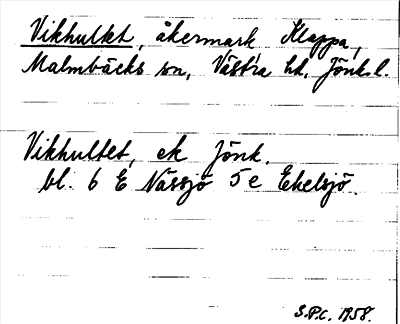 Vikhultet, åkermark Klappa,
Malmbäcks sn, Västra hd, Jönk.l.
Vikhultet, ek Jönk.
bl. 6 E Nässjö 5 e Ekelsjö.
S.P.C. 1958.